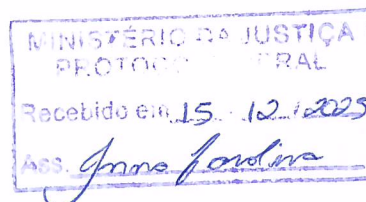 MINISTÉRIO DA JUSTIÇA
PROTOCOLO GERAL
Recebido em 15 12 2025
Ass.